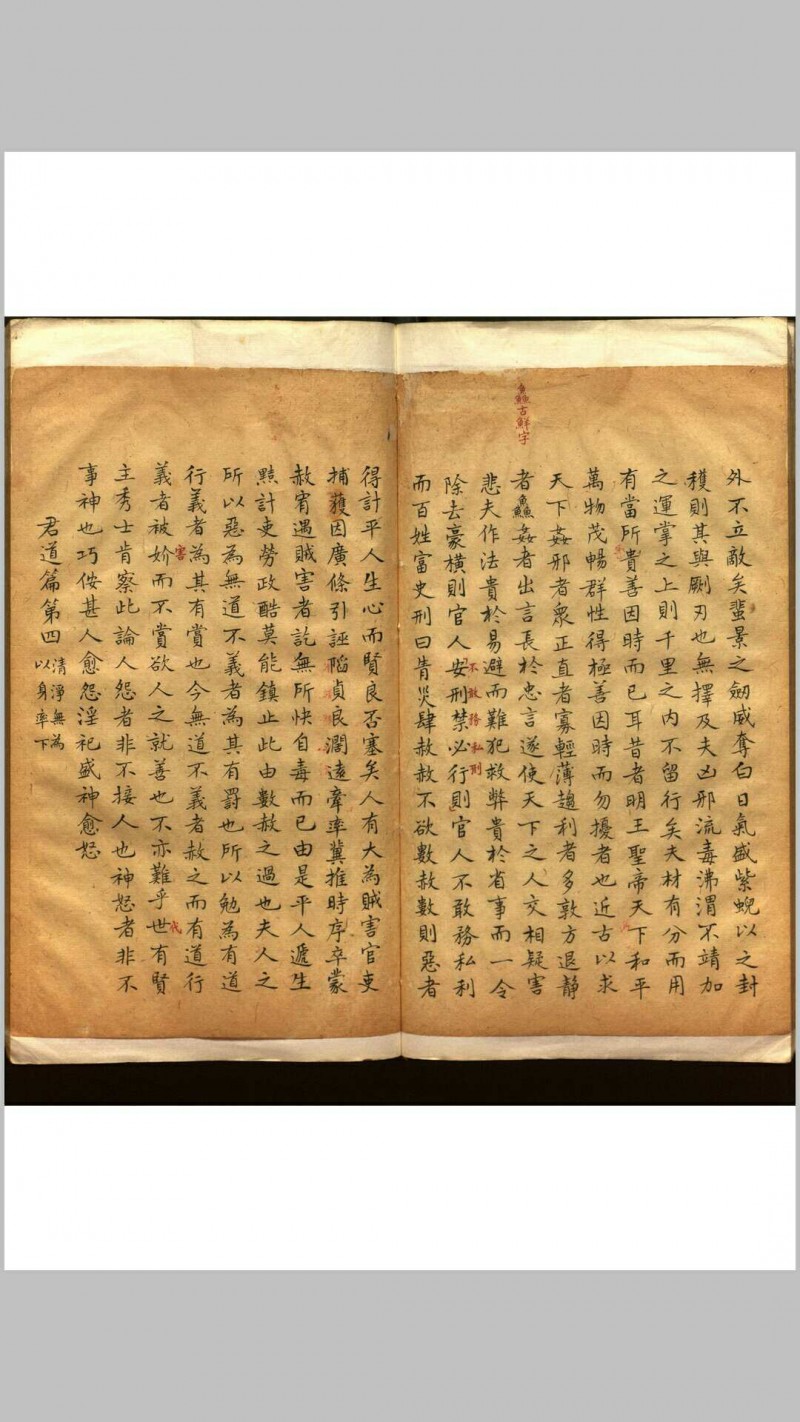 鱻古鮮字
外不立敵矣蜚景之劒威奪白日氣盛紫蜺以之封
穫則其與劂刃也無擇及夫凶邪流毒沸渭不靖加
之運掌之上則千里之內不留行矣夫材有分而用
有當所貴善因時而已耳昔者明王聖帝天下和平
萬物茂暢群性得極善因時而勿擾者也近古以求
天下姦邪者衆正直者寡輕薄趨利者多敦方退靜
者鱻姦者出言長於忠言遂使天下之人交相疑害
悲夫作法貴於易避而難犯救弊貴於省事而一令
不敢務私則
除去豪橫則官人安刑禁必行則官人不敢務私利
而百姓富史刑曰眚災肆赦赦不欲數赦數則惡者
得計平人生心而賢良否塞矣人有大為賊害官吏
捕獲因廣條引誣陷貞良濶遠牽率冀推時序卒蒙
赦宥遇賊害者訖無所快自毒而已由是平人遞生
黠計吏勞政酷莫能鎮止此由數赦之過也夫人之
所以惡為無道不義者為其有罰也所以勉為有道
行義者為其有賞也今無道不義者赦之而有道行
害
義者被妎而不賞欲人之就善也不亦難乎世有賢
戒
主秀士肯察此論人怨者非不接人也神怒者非不
事神也巧侫甚人愈怨淫祀盛神愈怒
君道篇第四
清淨無為
以身率下